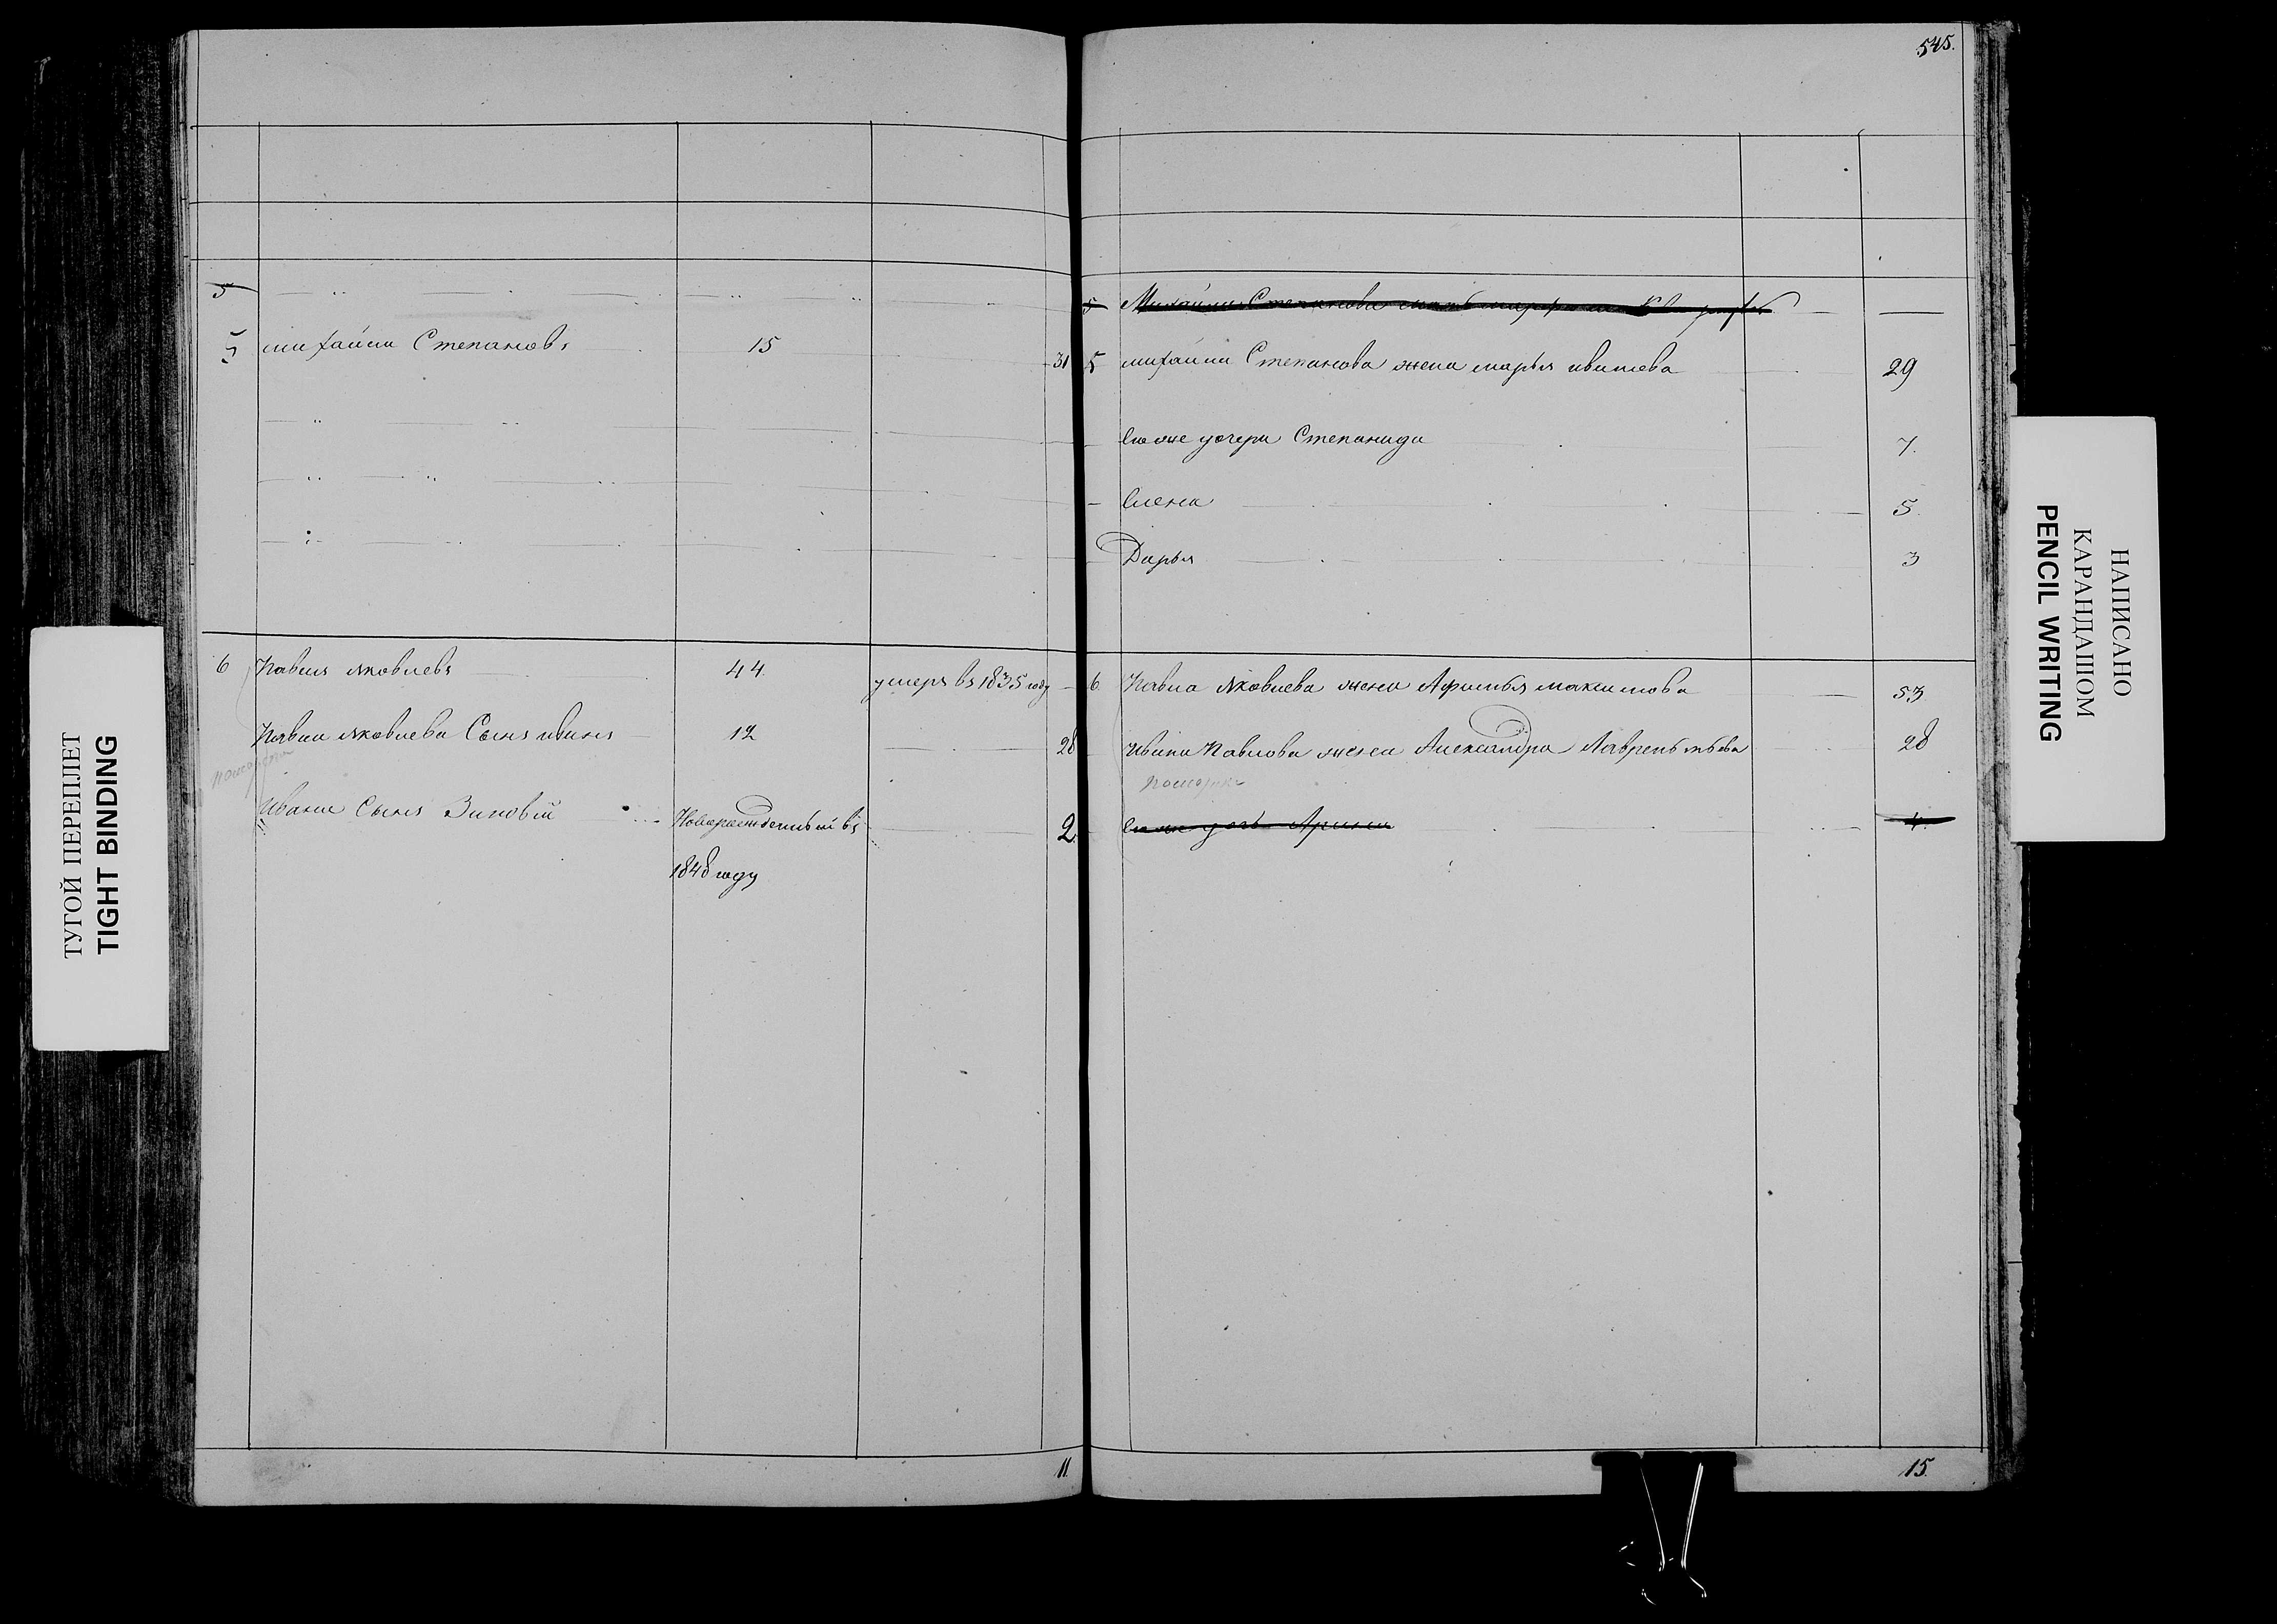 545.
5
5 михайла Степановъ 15 31
6 Павелъ яковлевъ 44. умеръ въ 1835 году
Павла яковлева Сынъ иванъ 12 28
Ивана Сынъ Зиновiй Новорожденный въ 2
1848 году
11
5
5 михайла Степанова жена марья иванова 29
Ево же дочери Степанида 7.
Елена 5.
Дарья 3
6. Павла яковлева жена Афимья максимова 53
Ивана Павлова жена Александра Лаврентьева 28
Ево же дочь Арина 4.
15.
ТУГОЙ ПЕРЕПЛЕТ
TIGHT BINDING
НАПИСАНО
КАРАНДАШОМ
PENCIL WRITING